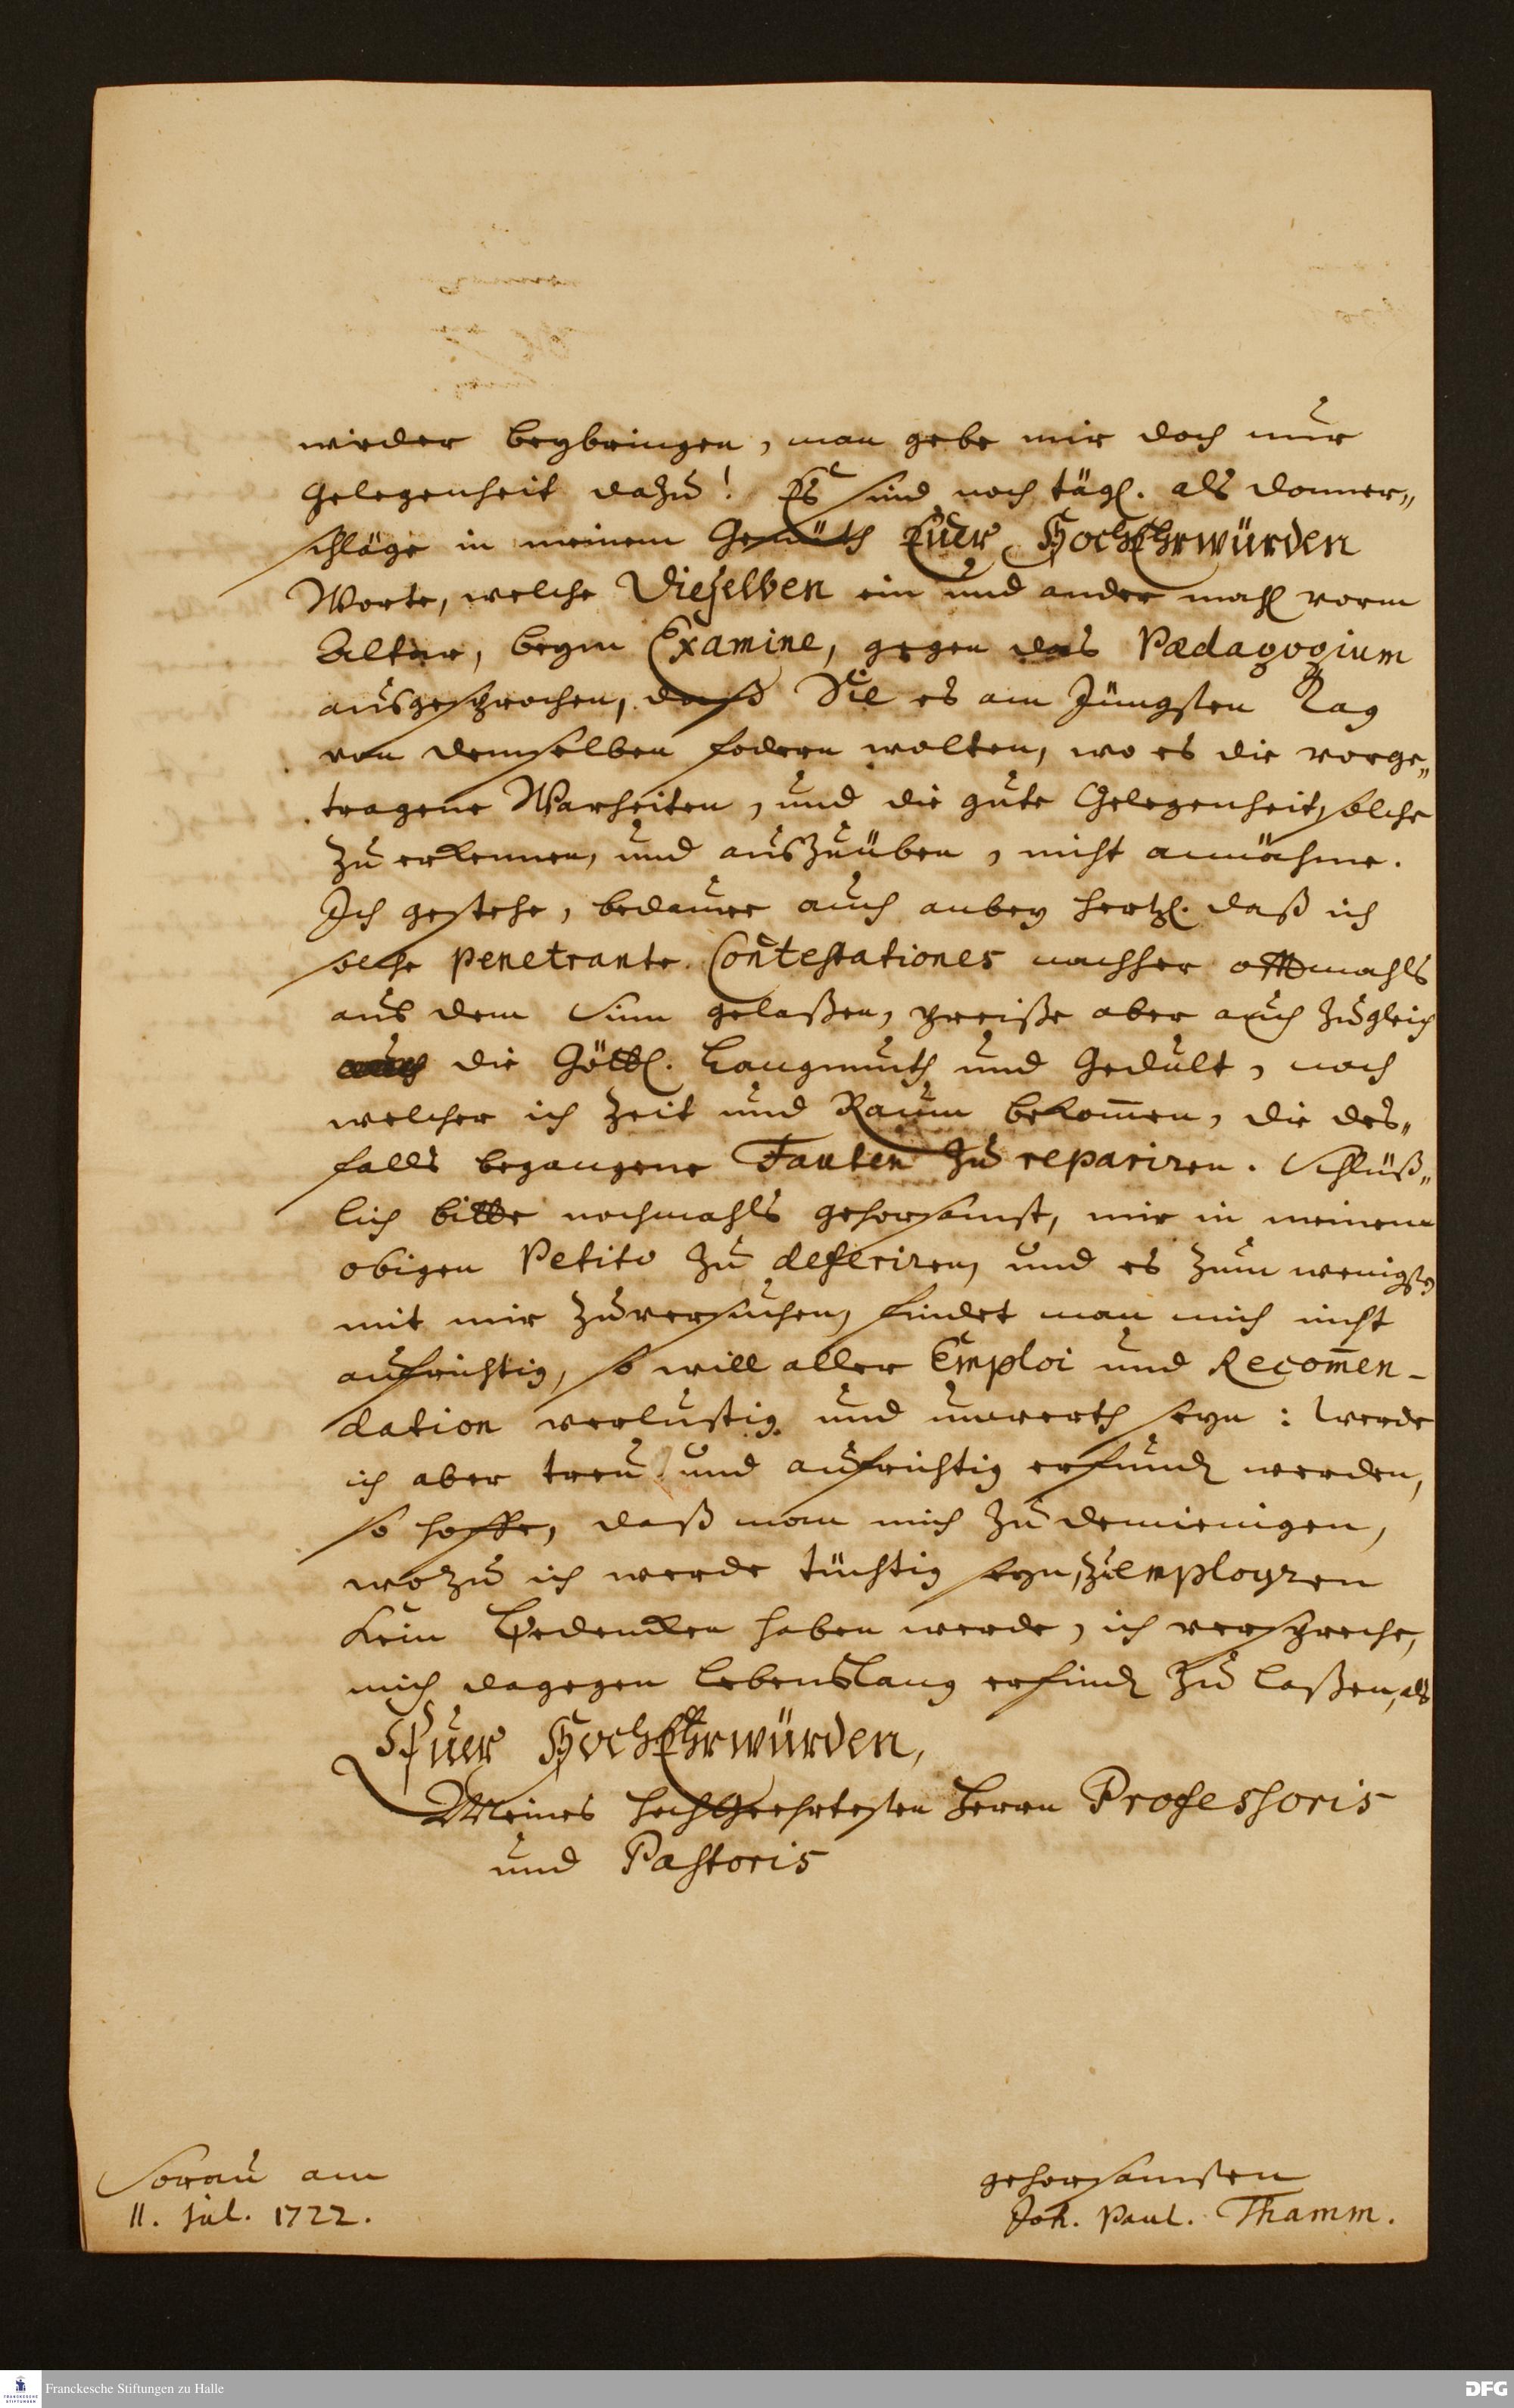 wieder beybringen, man gebe mir doch nur
Gelegenheit dazu! Es sind noch tägl. als donner„
schläge in meinem Gemüth Euer HochEhrwürden
Worte, welche Dieselben ein und ander mahl vorm
Altar, beym Examine, gegen das Pædagogium
ausgesprochen, daß Sie es am Jüngsten Tag
von demselben fodern wolten, wo es die vorge„
tragene Warheiten, und die gute Gelegenheit, solche
zu erkennen, und auszuüben, nicht annähme.
Ich gestehe, bedaure auch anbey hertzl. daß ich
solche penetrante Contestationes nachher offtmahls
aus dem Sinn gelaßen, preiße aber auch zugleich
die Göttl. Langmuth und Gedult, nach
welcher ich Zeit und Raum bekom̅en, die des„
falls begangene Fauten zu repariren. Schlüß„
lich bitte nochmahls gehorsamst, mir in meinem
obigen Petito zu deferiren, und es zum wenigsten
mit mir zuversuchen, findet man mich nicht
aufrichtig, so will aller Emploi und Recom̅en-
dation verlustig und unwerth seyn: werde
ich aber treu und aufrichtig erfunden werden,
so hoffe, daß man mich zu demienigen,
wozu ich werde tüchtig seyn, zu employren
kein Bedencken haben werde, ich verspreche,
mich dagegen lebenslang erfinden zu laßen, als
Euer HochEhrwürden,
Meines HochGeehrtesten Herrn Professoris
und Pastoris
Sorau am
11. jul. 1722.
gehorsamsten
Joh. Paul. Thamm.
Franckesche Stiftungen zu Halle
DFG